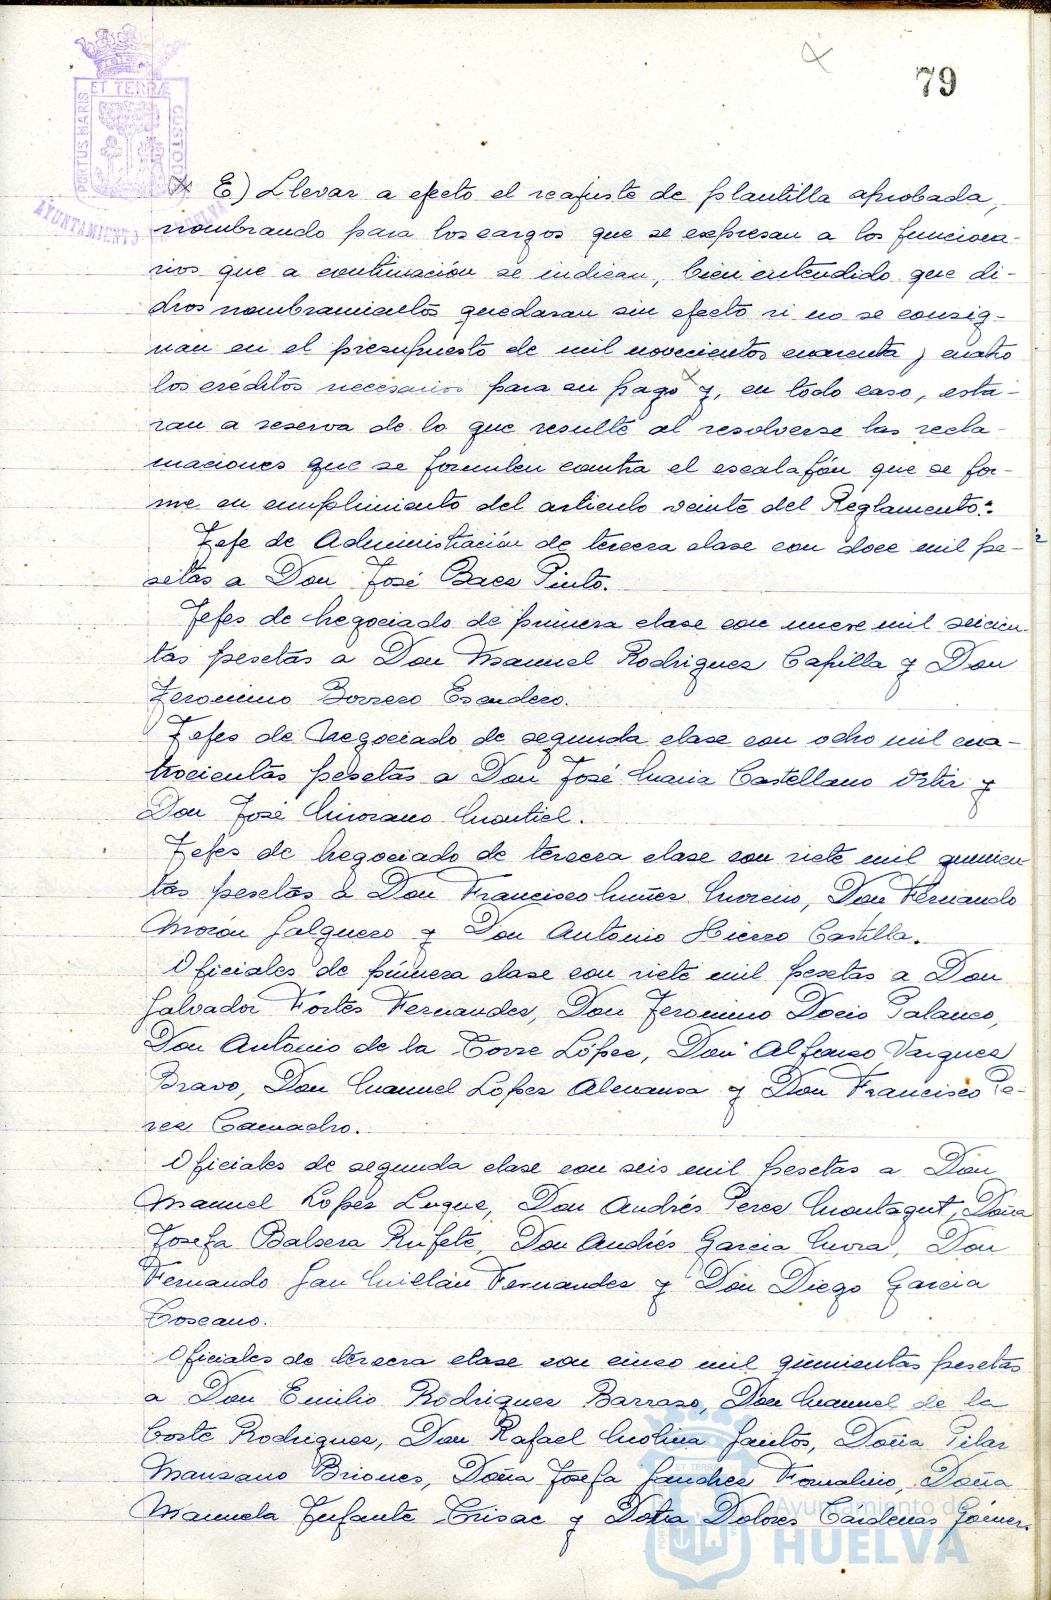 79
PORTUS MARIS ET TERRÆ CUSTODIA
AYUNTAMIENTO DE HUELVA
E) Llevar a efecto el reajuste de plantilla aprobada,
nombrando para los cargos que se expresan a los funciona-
rios que a continuación se indican, bien entendido que di-
chos nombramientos quedaran sin efecto si no se consig-
nan en el presupuesto de mil novecientos cuarenta y cuatro
los créditos necesarios para su pago y, en todo caso, esta-
ran a reserva de lo que resulte al resolverse las recla-
maciones que se formulen contra el escalafón que se for-
me en cumplimiento del articulo veinte del Reglamento:
Jefe de Administración de tercera clase con doce mil pe-
setas a Don José Baez Pinto.
Jefes de Negociado de primera clase con nueve mil seiscien-
tas pesetas a Don Manuel Rodriguez Capilla y Don
Jeronimo Borrero Escudero.
Jefes de Negociado de segunda clase con ocho mil cua-
trocientas pesetas a Don José Maria Castellano Ortiz y
Don José Morano Montiel.
Jefes de Negociado de tercera clase con siete mil quinien
tas pesetas a Don Francisco Nuñez Moreno, Don Fernando
Morón Salguero y Don Antonio Hierro Castilla.
Oficiales de primera clase con siete mil pesetas a Don
Salvador Fortes Fernandez, Don Jeronimo Docio Palanco,
Don Antonio de la Torre López, Don Alfonso Vazquez
Bravo, Don Manuel López Almansa y Don Francisco Pe-
rez Camacho.
Oficiales de segunda clase con seis mil pesetas a Don
Manuel Lopez Luque, Don Andrés Perez Montagut, Doña
Josefa Balsera Rufete, Don Andrés Garcia Mora, Don
Fernando San Millán Fernandez y Don Diego Garcia
Toscano.
Oficiales de tercera clase con cinco mil quinientas pesetas
a Don Emilio Rodriguez Barraso, Don Manuel de la
Corte Rodriguez, Don Rafael Molina Santos, Doña Pilar
Manzano Briones, Doña Josefa Sanchez, Doña
Manuela Infante y Doña Dolores Cardenas
Ayuntamiento de
HUELVA